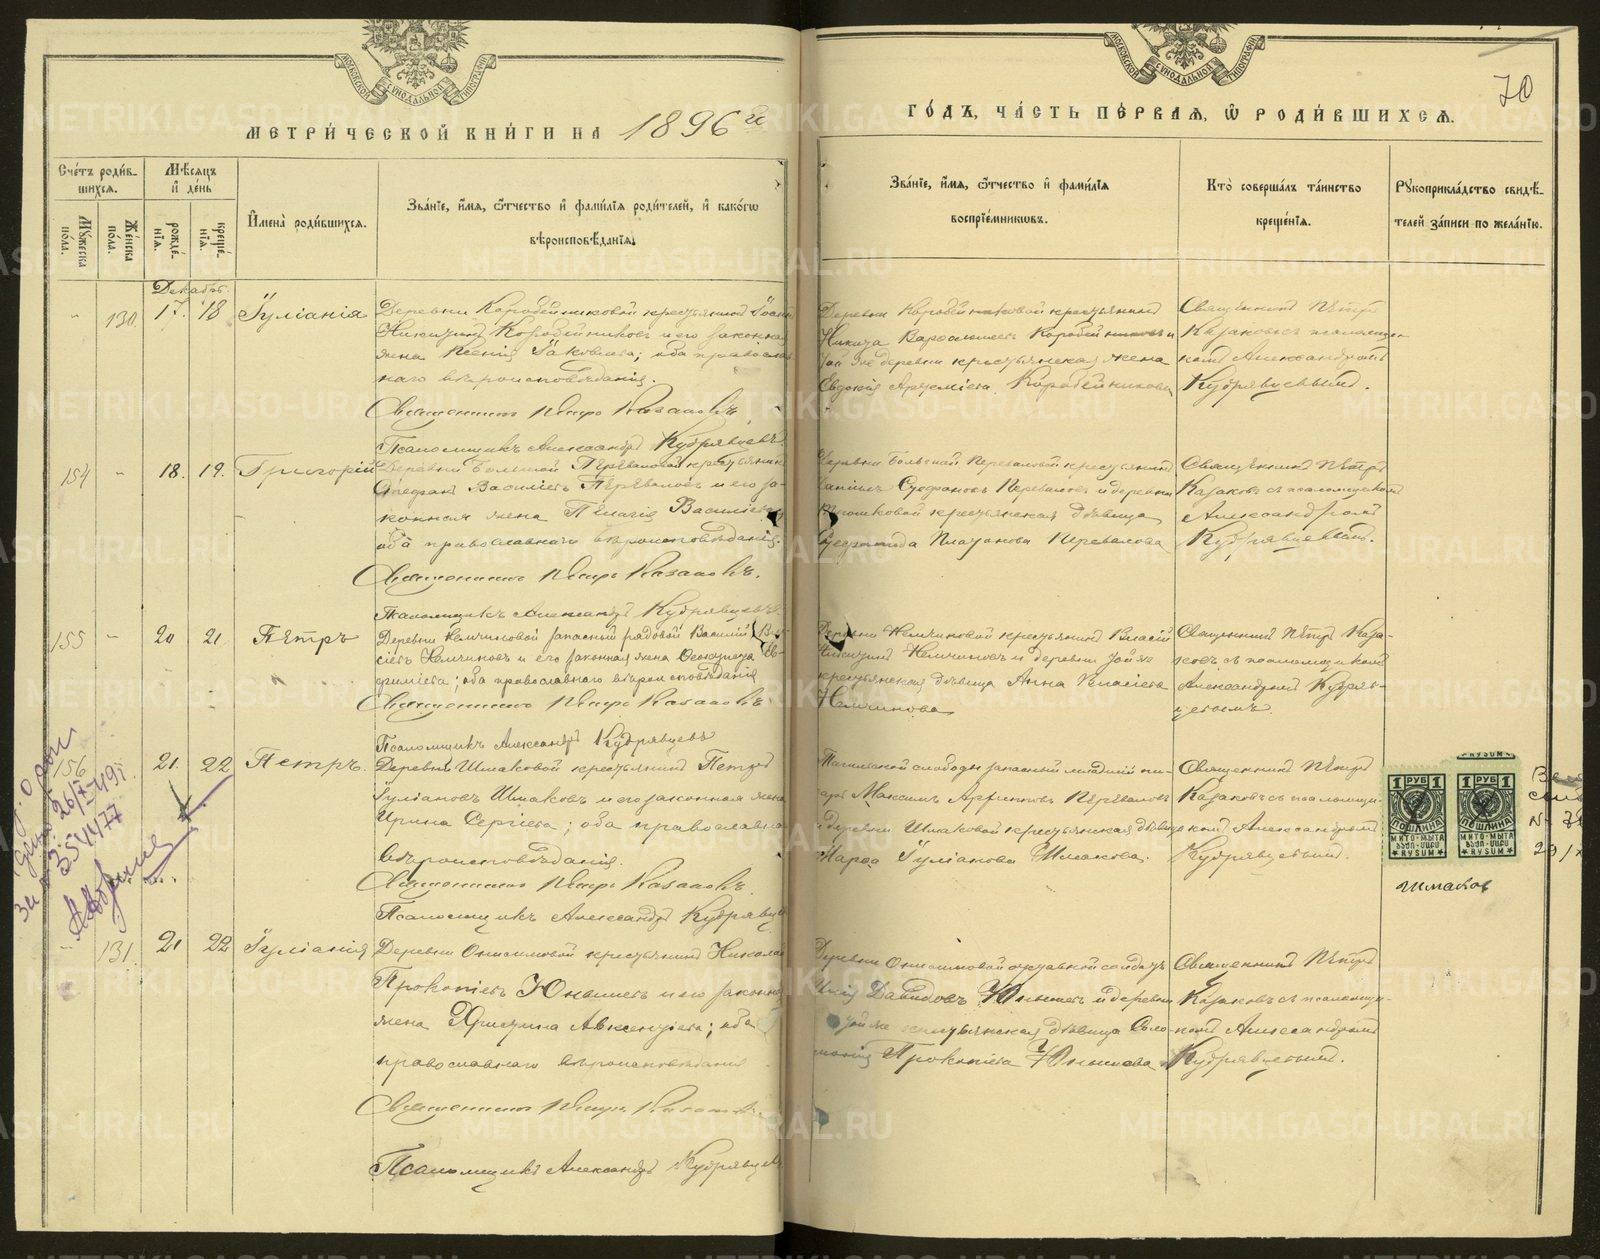 МОСКОВСКОЙ СУНОДАЛЬНОЙ ТИПОГРАФІИ
МЕТРИ́ЧЕСКОЙ КНИ́ГИ НА 1896 й
Сче́тъ роди́в-
шихся.
Мѣ́сяцъ
и҆ де́нь
Мꙋ́жеска
по́ла.
Же́нска
по́ла.
рожде́-
нїѧ.
креще́-
нїѧ.
И҆мена̀ роди́вшихсѧ.
Зва́нїе, и҆́мѧ, ѻ҆́тчество и҆ фамилїѧ роди́телей, и҆ како́гѡ
вѣроисповѣ́данїѧ.
Декабрь.
" 130. 17. 18 Іуліанія
Деревни Коробейниковой крестьянинъ Іоаннъ
Никитинъ Коробейниковъ и его законная
жена Ксенія Іаковлева; оба православ
наго вѣроисповѣданія.
Священникъ Петръ Казаковъ.
Псаломщикъ Александръ Кудрявцевъ
154 " 18. 19. Григорій
Деревни Большой Переваловой крестьянинъ
Стефанъ Василіевъ Переваловъ и его за-
конная жена Пелагія Василіева
оба православнаго вѣроисповѣданія.
Священникъ Петръ Казаковъ.
Псаломщикъ Александръ Кудрявцевъ
155 " 20 21 Петръ
Деревни Немчиновой запасный рядовой Василій Вла-
сіевъ Немчиновъ и его законная жена Ѳеоктиста Ев-
фиміева; оба православнаго вѣроисповѣданія
Священникъ Петръ Казаковъ
Псаломщикъ Александръ Кудрявцевъ
156 21. 22 Петръ.
Деревни Шмаковой крестьянинъ Петръ
Іуліановъ Шмаковъ и его законная жена
Ирина Сергіева; оба православна
вѣроисповѣданія.
Священникъ Петръ Казаковъ.
Псаломщикъ Александръ Кудрявцев
" 131. 21 22 Іуліанія
Деревни Онисимовой крестьянинъ Николай
Прокопіевъ Юнышевъ и его законная
жена Христина Авксентіева; оба
православнаго вѣроисповѣданія
Священникъ Петръ Казаковъ.
Псаломщикъ Александръ Кудрявцев
26/X-49г.
354477
МОСКОВСКОЙ СУНОДАЛЬНОЙ ТИПОГРАФІИ
70
ГО́ДЪ, ЧА́СТЬ ПЕ́РВАѦ, Ѡ҆ РОДИ́ВШИХСѦ.
Зва́нїе, и҆́мѧ, ѻ҆́тчество и҆ фамилїѧ
воспрїе́мниковъ.
Кто̀ соверша́лъ та́инство
креще́нїѧ.
Рꙋкоприкла́дство свидѣ́-
телей за́писи по жела́нїю.
Деревни Коробейниковой крестьянинъ
Никита Коробейниковъ и
той же деревни крестьянская жена
Евдокія Артеміева Коробейникова
Священникъ Петръ
Казаковъ съ псаломщи-
комъ Александромъ
Кудрявцевымъ.
Деревни Большой Переваловой крестьянинъ
Даніилъ Стефановъ Переваловъ и деревни
крестьянская дѣвица
Платонова Перевалова
Священникъ Петръ
Казаковъ съ псаломщикомъ
Александромъ
Кудрявцевымъ.
Деревни Немчиновой крестьянинъ Власій
Никитинъ Немчиновъ и деревни той же
крестьянская дѣвица Анна Власіева
Немчинова
Священникъ Петръ Каза-
ковъ съ псаломщикомъ
Александромъ Кудряв-
цевымъ.
слободы запасный младшій пи-
сарь Максимъ Переваловъ
и деревни Шмаковой крестьянская дѣвица
Марѳа Іуліанова Шмакова.
Священникъ Петръ
Казаковъ съ псаломщи-
комъ Александромъ
Кудрявцевымъ.
1 РУБ 1
ПОШЛИНА
МИТО-МЫТА
RYSUM
1 РУБ 1
ПОШЛИНА
МИТО-МЫТА
RYSUM
Шмаков
Деревни Онисимовой отставной солдатъ
Давидовъ Юнышевъ и деревни
той же крестьянская дѣвица Соло-
монія Прокопіева Юнышева
Священникъ Петръ
Казаковъ съ псаломщи-
комъ Александромъ
Кудрявцевымъ.
METRIKI.GASO-URAL.RU